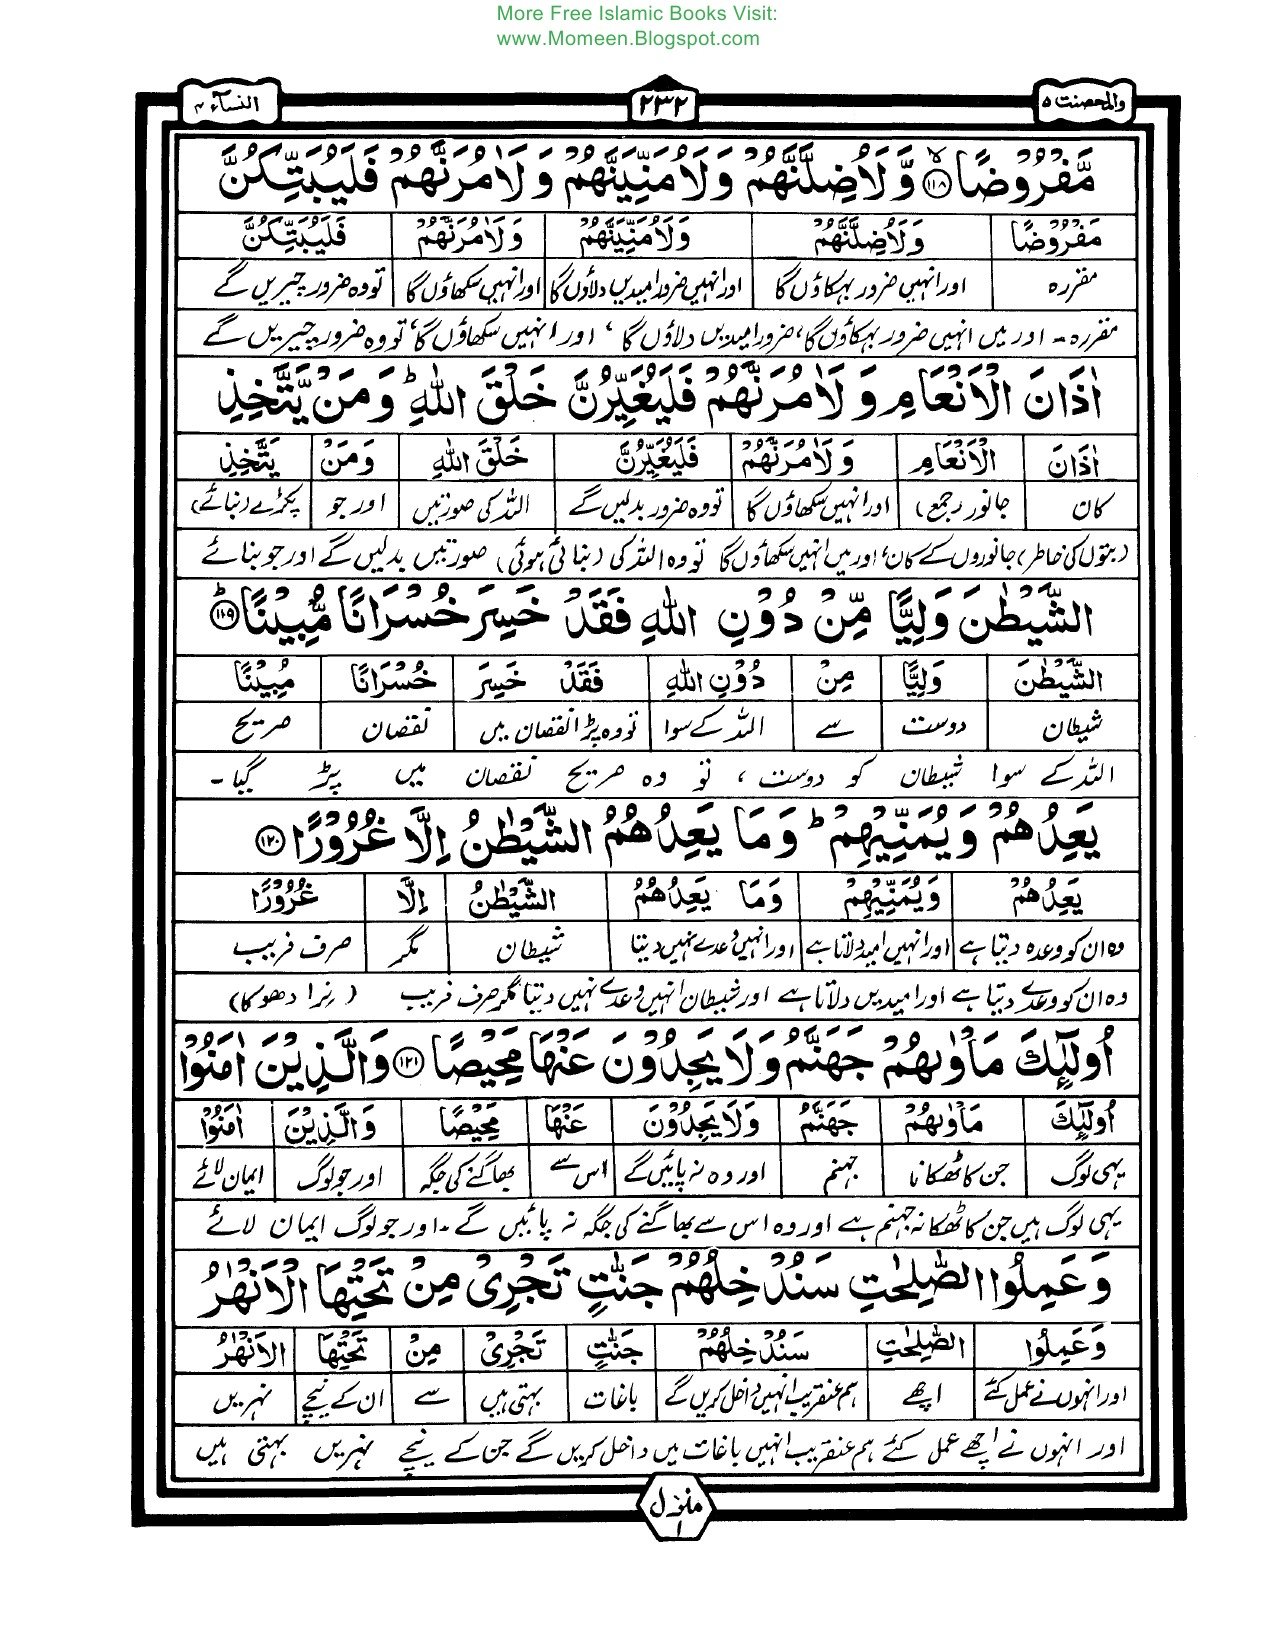 More Free Islamic Books Visit:
www.Momeen.Blogspot.com
والمحصنت ۵ ۲۳۲ النسآء ۴
مَّفْرُوْضًا ۱۱۸ۙ وَّلَاُضِلَّنَّهُمْ وَلَاُمَنِّيَنَّهُمْ وَلَاٰمُرَنَّهُمْ فَلَيُبَتِّكُنَّ
مَفْرُوْضًا وَلَاُضِلَّنَّهُمْ وَلَاُمَنِّيَنَّهُمْ وَلَاٰمُرَنَّهُمْ فَلَيُبَتِّكُنَّ
مقررہ اور انہیں ضرور بہکاؤں گا اور انہیں ضرور امیدیں دلاؤں گا اور انہیں سکھاؤں گا تو وہ ضرور چیریں گے
مقررہ - اور میں انہیں ضرور بہکاؤں گا، ضرور امیدیں دلاؤں گا، اور انہیں سکھاؤں گا، تو وہ ضرور چیریں گے
اٰذَانَ الْاَنْعَامِ وَلَاٰمُرَنَّهُمْ فَلَيُغَيِّرُنَّ خَلْقَ اللّٰهِ ؕ وَمَنْ يَّتَّخِذِ
اٰذَانَ الْاَنْعَامِ وَلَاٰمُرَنَّهُمْ فَلَيُغَيِّرُنَّ خَلْقَ اللّٰهِ وَمَنْ يَتَّخِذِ
کان جانور (جمع) اور انہیں سکھاؤں گا تو وہ ضرور بدلیں گے اللہ کی صورتیں اور جو پکڑے (بنائے)
(بتوں کی خاطر) جانوروں کے کان، اور میں انہیں سکھاؤں گا تو وہ اللہ کی (بنائی ہوئی) صورتیں بدلیں گے اور جو بنائے
الشَّيْطٰنَ وَلِيًّا مِّنْ دُوْنِ اللّٰهِ فَقَدْ خَسِرَ خُسْرَانًا مُّبِيْنًا ۱۱۹ؕ
الشَّيْطٰنَ وَلِيًّا مِنْ دُوْنِ اللّٰهِ فَقَدْ خَسِرَ خُسْرَانًا مُبِيْنًا
شیطان دوست سے اللہ کے سوا تو وہ پڑا نقصان میں نقصان صریح
اللہ کے سوا شیطان کو دوست، تو وہ صریح نقصان میں پڑ گیا -
يَعِدُهُمْ وَيُمَنِّيْهِمْ ؕ وَمَا يَعِدُهُمُ الشَّيْطٰنُ اِلَّا غُرُوْرًا ۱۲۰
يَعِدُهُمْ وَيُمَنِّيْهِمْ وَمَا يَعِدُهُمُ الشَّيْطٰنُ اِلَّا غُرُوْرًا
وہ ان کو وعدہ دیتا ہے اور انہیں امید دلاتا ہے اور انہیں وعدے نہیں دیتا شیطان مگر صرف فریب
وہ ان کو وعدے دیتا ہے اور امیدیں دلاتا ہے اور شیطان انہیں وعدے نہیں دیتا مگر صرف فریب (نرا دھوکا)
اُولٰٓئِكَ مَاْوٰىهُمْ جَهَنَّمُ وَلَا يَجِدُوْنَ عَنْهَا مَحِيْصًا ۱۲۱ وَالَّذِيْنَ اٰمَنُوْا
اُولٰٓئِكَ مَاْوٰىهُمْ جَهَنَّمُ وَلَا يَجِدُوْنَ عَنْهَا مَحِيْصًا وَالَّذِيْنَ اٰمَنُوْا
یہی لوگ جن کا ٹھکانا جہنم اور وہ نہ پائیں گے اس سے بھاگنے کی جگہ اور جو لوگ ایمان لائے
یہی لوگ ہیں جن کا ٹھکانہ جہنم ہے اور وہ اس سے بھاگنے کی جگہ نہ پائیں گے - اور جو لوگ ایمان لائے
وَعَمِلُوا الصّٰلِحٰتِ سَنُدْخِلُهُمْ جَنّٰتٍ تَجْرِيْ مِنْ تَحْتِهَا الْاَنْهٰرُ
وَعَمِلُوا الصّٰلِحٰتِ سَنُدْخِلُهُمْ جَنّٰتٍ تَجْرِيْ مِنْ تَحْتِهَا الْاَنْهٰرُ
اور انہوں نے عمل کئے اچھے ہم عنقریب انہیں داخل کریں گے باغات بہتی ہیں سے ان کے نیچے نہریں
اور انہوں نے اچھے عمل کئے ہم عنقریب انہیں باغات میں داخل کریں گے جن کے نیچے نہریں بہتی ہیں
منزل ۱